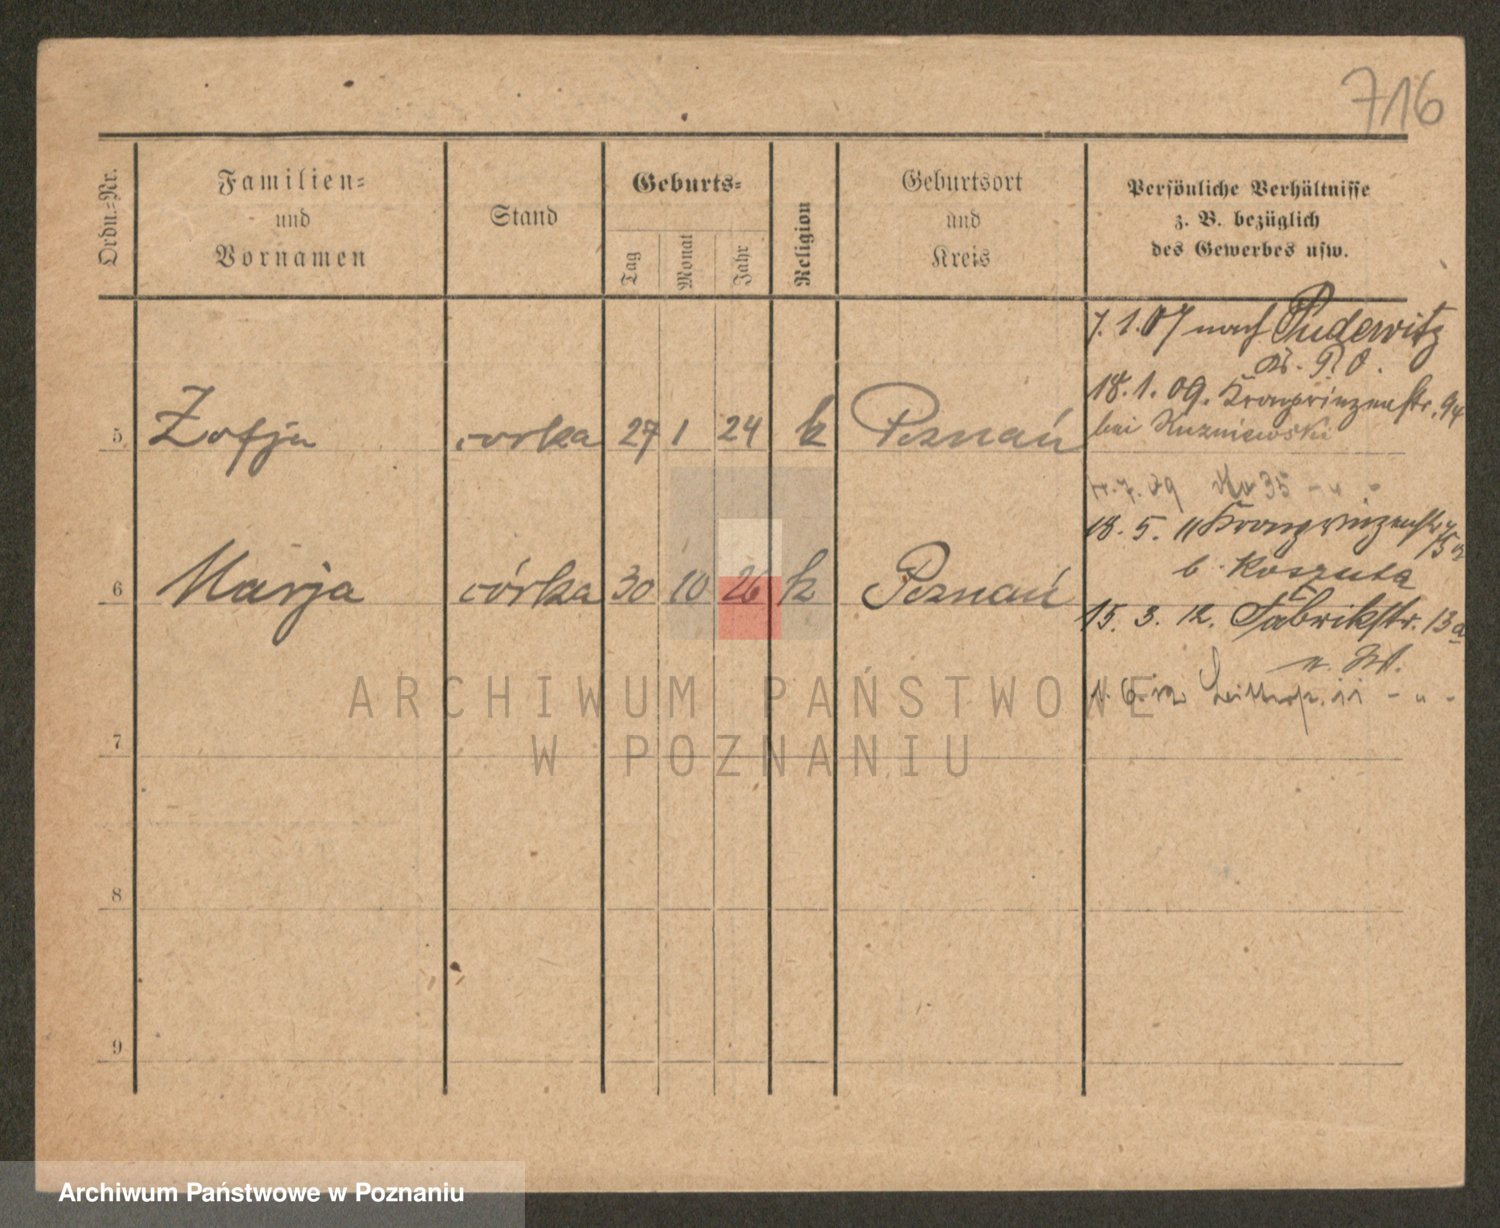 716
Ordn.-Nr.
Familien-
und
Vornamen
Stand
Geburts-
Tag
Monat
Jahr
Religion
Geburtsort
und
Kreis
Persönliche Verhältnisse
z. B. bezüglich
des Gewerbes usw.
7. 1. 07 nach Pudewitz
Kr. P. O.
18. 1. 09. Kronprinzenstr. 94
bei Kuzniewski
5 Zofja corka 27 1 24 k Poznań
7. 09 35 - " -
18. 5. 11 Kronprinzenstr.
b. Koszuta
6 Marja córka 30 10 26 k Poznań
15. 3. 12. Fabrikstr. 13a
ARCHIWUM PAŃSTWOWE
W POZNANIU
7
8
9
Archiwum Państwowe w Poznaniu